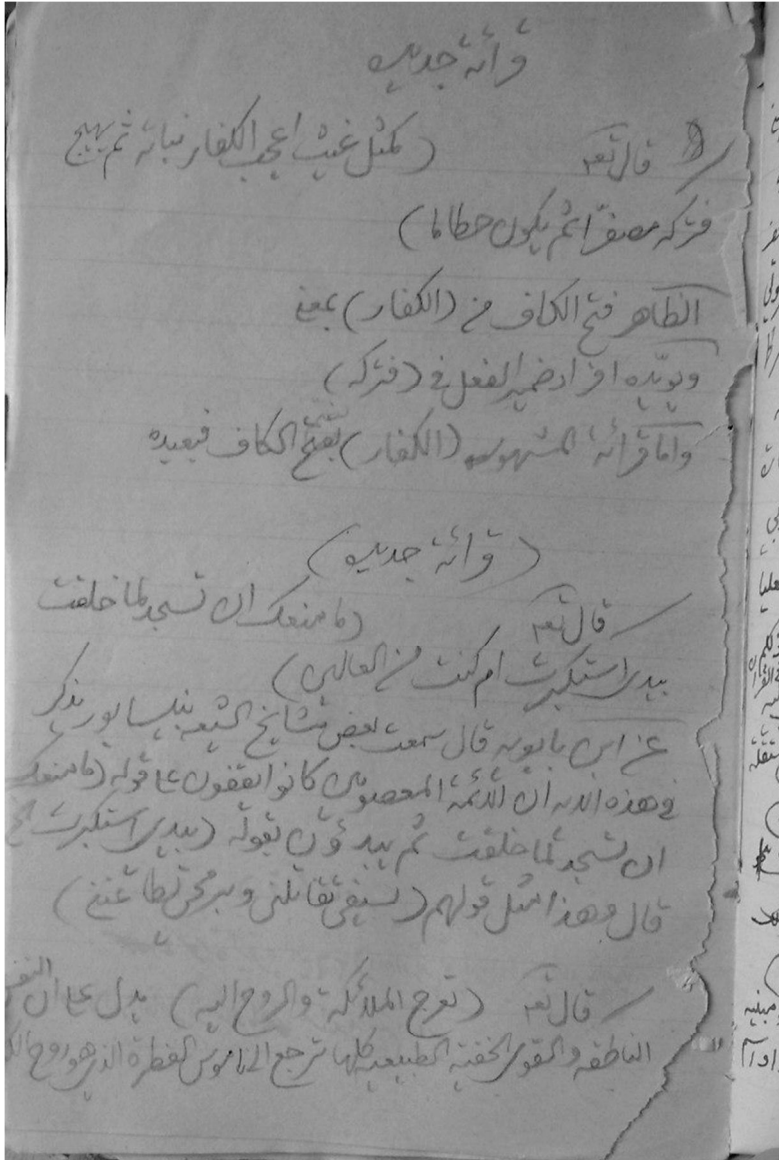 قرائة جديده
قال تعـ (كمثل غيث اعجب الكفار نباته ثم يهيج
فتركه مصفرّا ثم يكون حطاما)
الظاهر فتح الكاف من (الكفار) بمعنى
ويويّده افراد ضمير الفعل في (فتركه)
واما قرائة المشهور (الكفار) الكاف فبعيده
(قرائة جديده)
قال تعـ (ما منعك ان تسجد لما خلقت
بيدي استكبرت ام كنت من العالين)
عن ابن بابويه قال سمعت بعض مشايخ الشيعه بنيسابور يذكر
في هذه الايه ان الائمة المعصومين كانوا يقفون على قوله (ما منعك
ان تسجد لما خلقت ثم يبدؤن بقوله (بيدي استكبرت الخ
قال وهذا مثل قولهم (بسيفي تقاتلني وبرمحي تطاعنني)
قال تعـ (تعرج الملائكة والروح اليه) يدل على ان
الناطقه والقوى الخفية الطبيعيه كلها ترجع الى ناموس الفطرة الذي هو روح